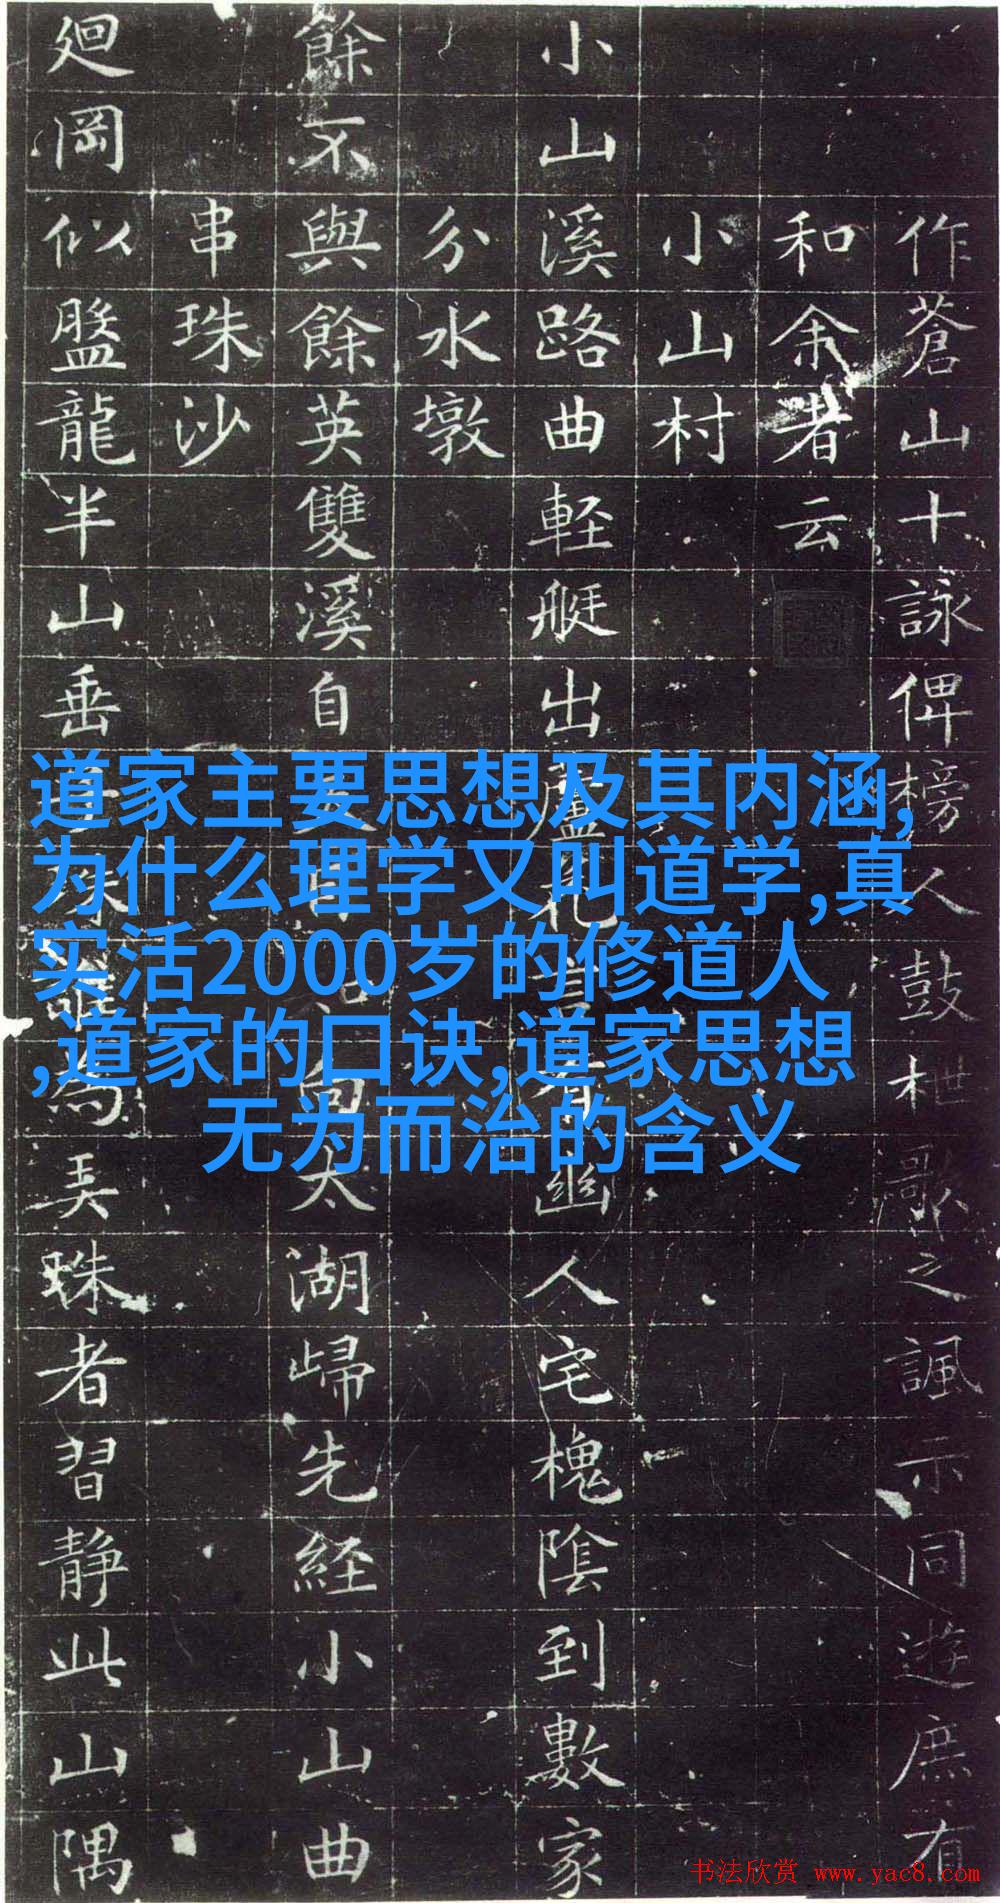 作蒼山十詠俾榜人鼓枻歌之諷示同遊庶有
和余者云
小山村
小山溪路曲軽艇出蘆花有幽人宅槐陰到數家
分水墩
餘不與餘英雙溪自太湖歸先経小山曲
串珠沙
廻岡似盤龍半山垂為弄珠者習静此山隅
道家主要思想及其内涵,
为什么理学又叫道学,真
实活2000岁的修道人
,道家的口诀,道家思想
无为而治的含义
书法欣赏 www.yac8.com